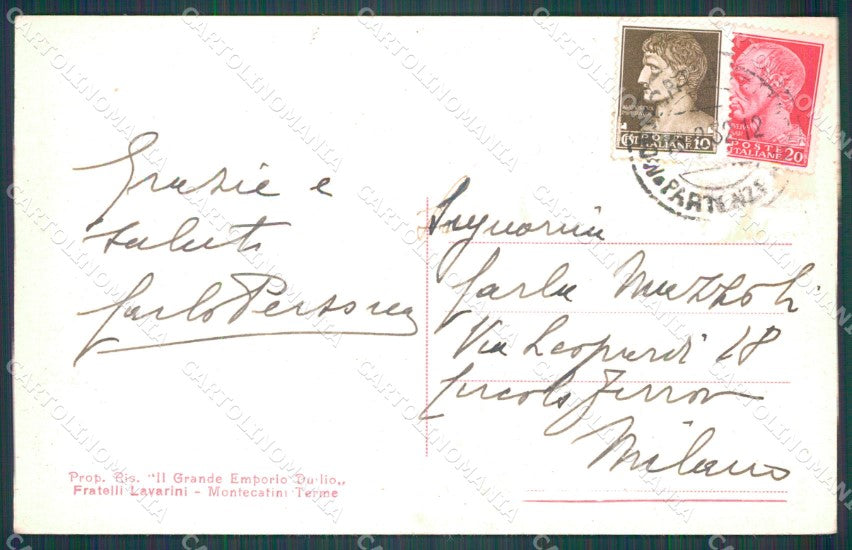 Grazie e
saluti
Carlo
Signorina
Carla Muzzoli
Via Leopardi 18
Circolo Ferrov
Milano
Prop. Ris. "Il Grande Emporio Duilio„
Fratelli Lavarini - Montecatini Terme
CENT. POSTE ITALIANE 10
POSTE ITALIANE 20
PARTENZE
CARTOLINOMANIA